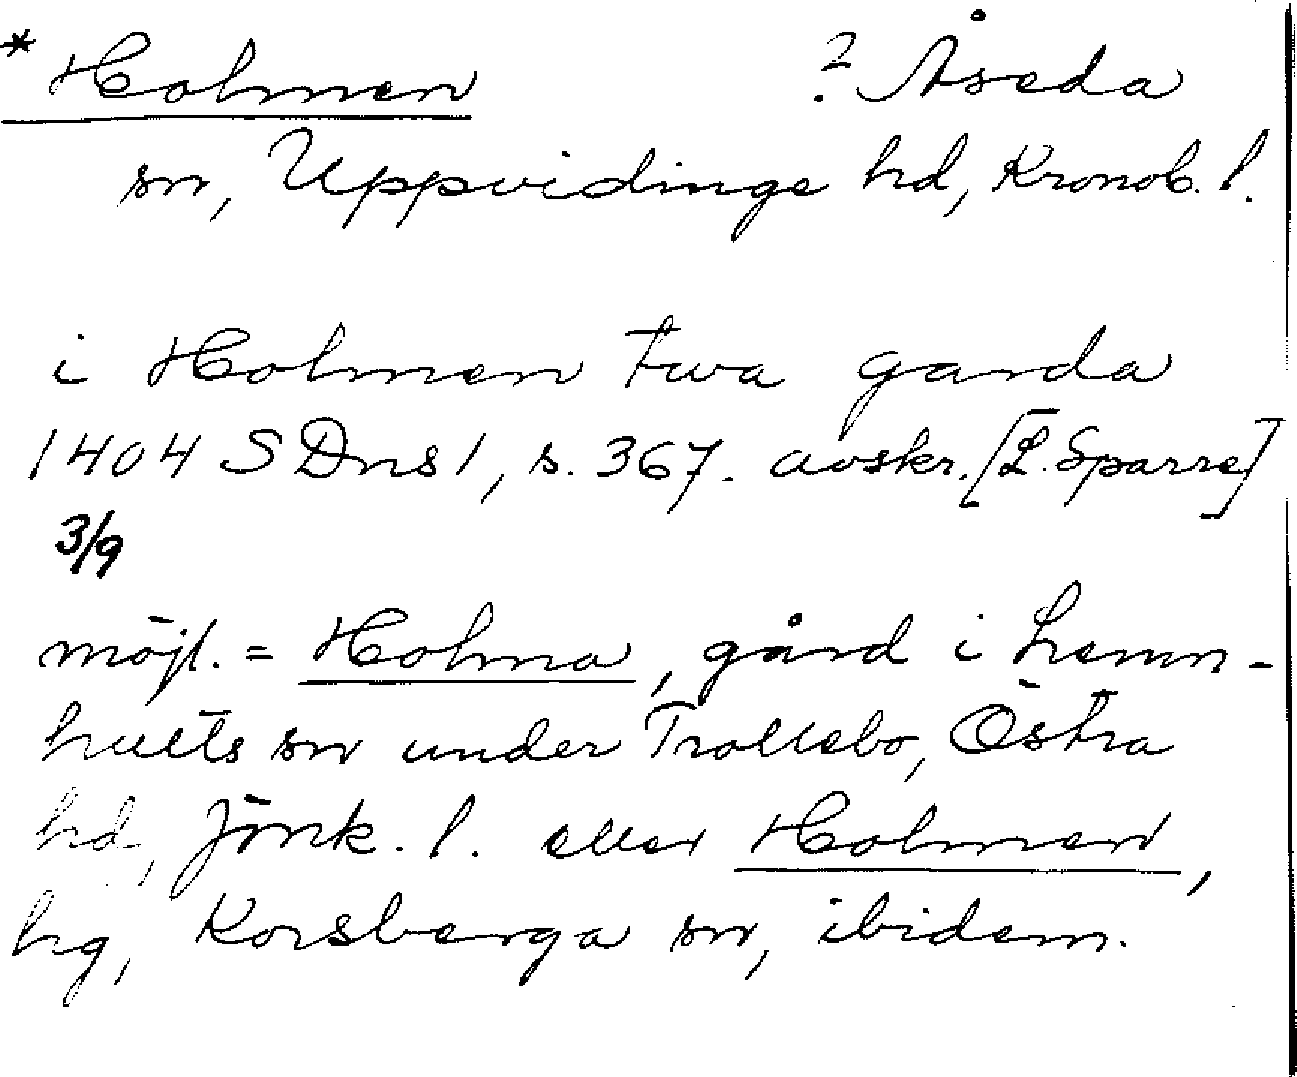 * Holmen ? Åseda
sn, Uppvidinge hd, Kronob. l.
i Holmen twa garda
1404 SDns 1, s. 367. avskr. [L. Sparre]
3/9
möjl. = Holma, gård i Lemn-
hults sn under Trollebo, Östra
hd, Jönk. l. eller Holmen,
hg, Korsberga sn, ibidem.